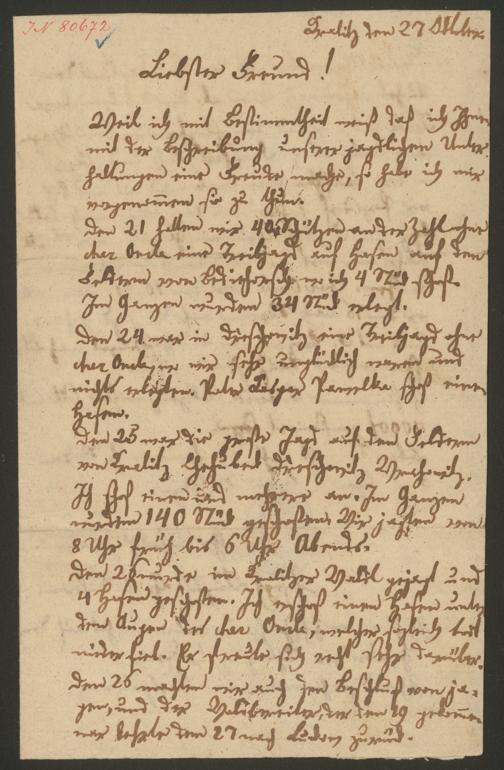 IN 80672
Kralitz den 27 Oktober
Liebster Freund!
Weil ich mit Bestimmtheit weiß daß ich Ihnen
mit der Beschreibung unserer jagdlichen Unter-
haltungen eine Freude mache, so habe ich mir
vorgenommen sie zu thun.
Den 21 hatten wir 40 Schützen an der Zahl ohne
eine Treibjagd auf Hasen auf den
Feldern von wo ich 4 Stück schoß.
Im Ganzen wurden 34 Stück erlegt.
Den 24 war in eine Treibjagd ohne
wo wir sehr unglücklich waren und
nichts erlegten. Pater Pawelka schoß einen
Hasen.
Den 25 war die große Jagd auf den Feldern
von Kralitz
Ich schoß einen und mehrere an. Im Ganzen
wurden 140 Stück geschossen. Wir jagten von
8 Uhr früh bis 6 Uhr Abends.
Den 26 wurde im Kralitzer Waldl gejagt und
4 Hasen geschossen. Ich erschoß einen Hasen unter
den Augen des, welcher sogleich todt
niederfiel. Er freute sich recht sehr darüber.
Den 26 machten wir auch den Beschluß von ja-
gen, und der, der den 19 gekommen
war kehrte den 27 nach zurück.